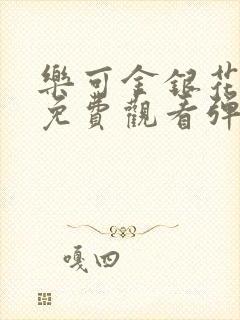 樂可金銀花
免費觀看彈
嘎四